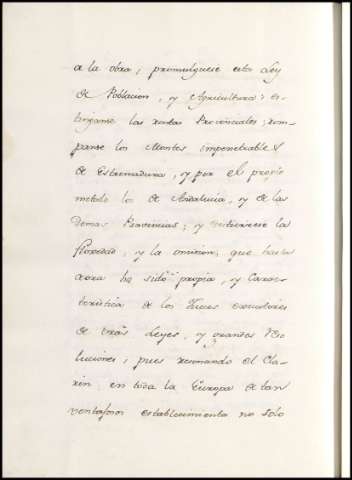 a la obra; promulguese esta Ley
de Poblacion, y Agricultura: es-
tinganse las rentas Provinciales; rom-
panse los Montes impenetrables
de Estremadura, y por el propio
metodo los de Andalucia, y de las
Demas Provincias; y destierrese la
floxedad, y la omision, que hasta
aora ha sido propia, y Carac-
teristica de los Jueces executores
de vrãs Leyes, y grandes Reso-
luciones; pues resonando el Cla-
rin en toda la Europa de tan
ventajoso establecimiento no solo